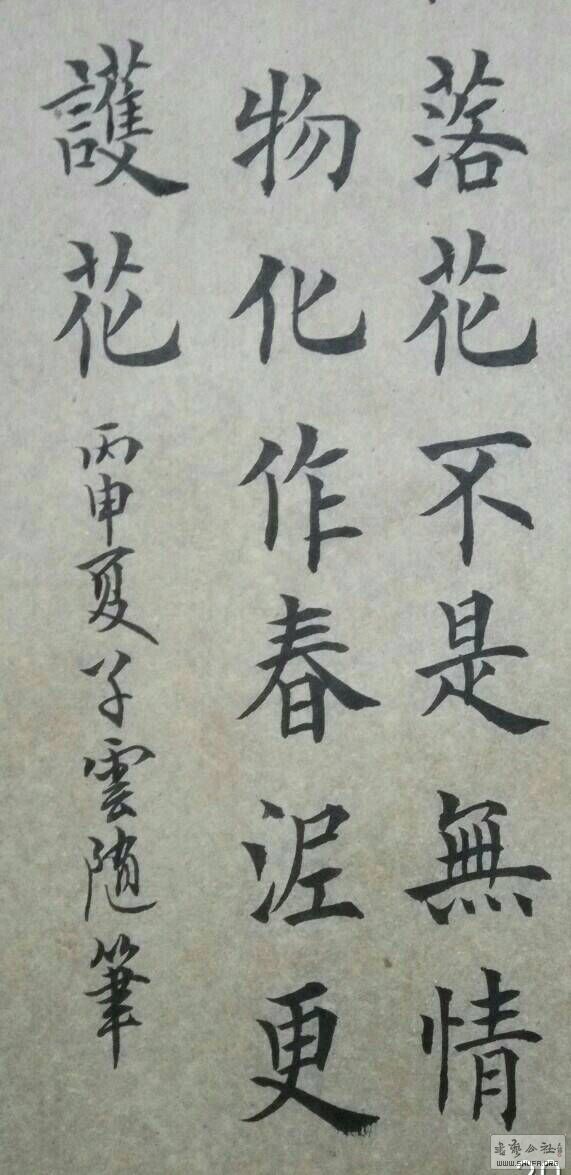 落花不是無情
物化作春泥更
護花
丙申夏子雲随筆
WWW.SHUFA.ORG